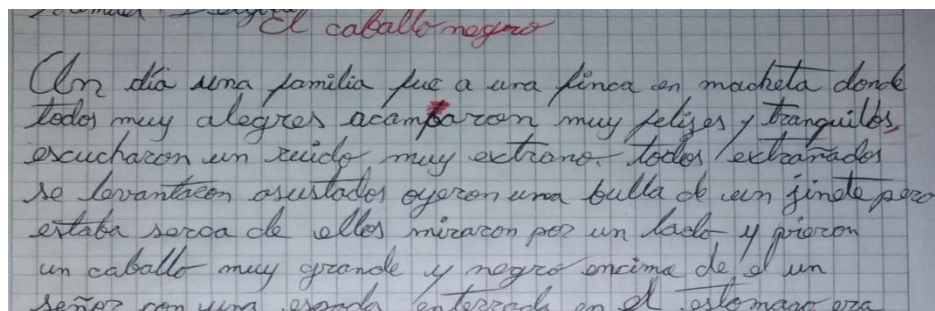 El caballo negro
Un día una familia fue a una finca en macheta donde
todos muy alegres acamparon muy felizes y tranquilos,
escucharon un ruido muy extrano. todos extrañados
se levantaron asustados oyeron una bulla de un jinete pero
estaba serca de ellos miraron por un lado y vieron
un caballo muy grande y negro encima de el un
señor con una espada enterrada en el estomago era